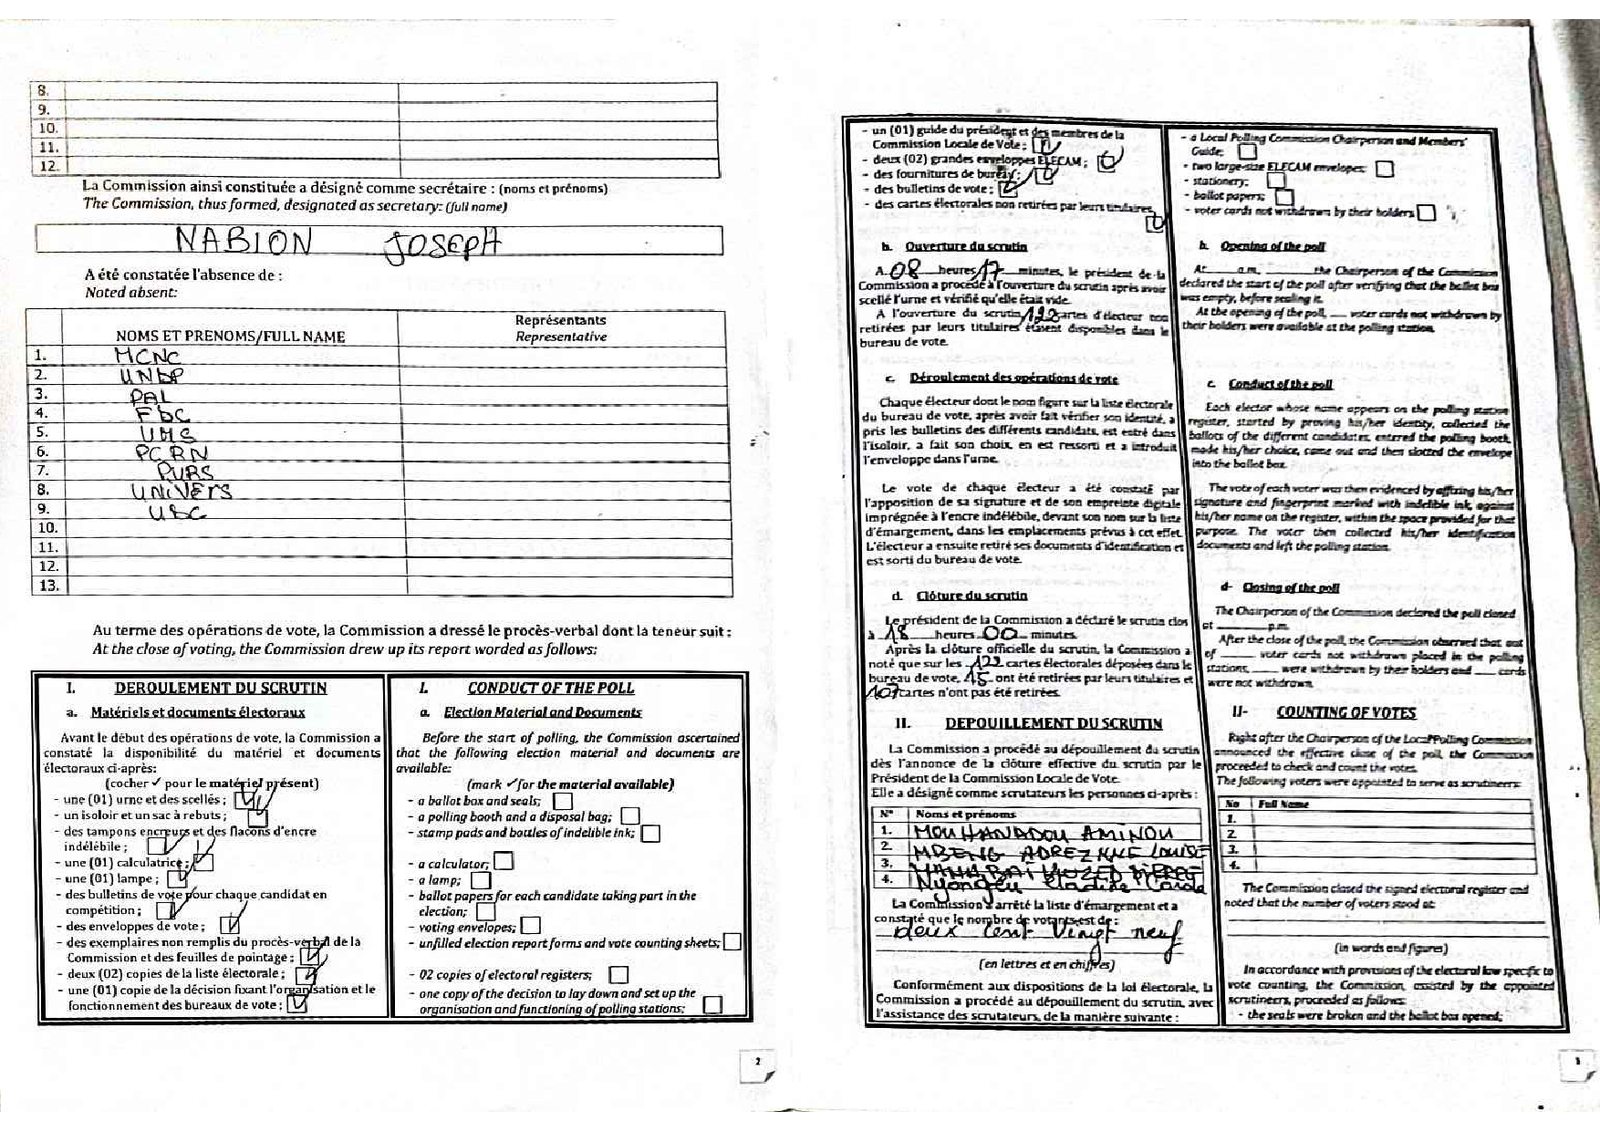 8.
9.
10.
11.
12.
La Commission ainsi constituée a désigné comme secrétaire : (noms et prénoms)
The Commission, thus formed, designated as secretary: (full name)
NABION JOSEPH
A été constatée l'absence de :
Noted absent:
NOMS ET PRENOMS/FULL NAME
Représentants
Representative
1. MCNC
2. UNDP
3. PAL
4. FDC
5. UMS
6. PCRN
7. PURS
8. UNIVERS
9. USC
10.
11.
12.
13.
Au terme des opérations de vote, la Commission a dressé le procès-verbal dont la teneur suit :
At the close of voting, the Commission drew up its report worded as follows:
I. DEROULEMENT DU SCRUTIN
a. Matériels et documents électoraux
Avant le début des opérations de vote, la Commission a
constaté la disponibilité du matériel et documents
électoraux ci-après:
(cocher ✓ pour le matériel présent)
- une (01) urne et des scellés ;
- un isoloir et un sac à rebuts ;
- des tampons encreurs et des flacons d'encre
indélébile ;
- une (01) calculatrice ;
- une (01) lampe ;
- des bulletins de vote pour chaque candidat en
compétition ;
- des enveloppes de vote ;
- des exemplaires non remplis du procès-verbal de la
Commission et des feuilles de pointage ;
- deux (02) copies de la liste électorale ;
- une (01) copie de la décision fixant l'organisation et le
fonctionnement des bureaux de vote ;
I. CONDUCT OF THE POLL
a. Election Material and Documents
Before the start of polling, the Commission ascertained
that the following election material and documents are
available:
(mark ✓ for the material available)
- a ballot box and seals;
- a polling booth and a disposal bag;
- stamp pads and bottles of indelible ink;
- a calculator;
- a lamp;
- ballot papers for each candidate taking part in the
election;
- voting envelopes;
- unfilled election report forms and vote counting sheets;
- 02 copies of electoral registers;
- one copy of the decision to lay down and set up the
organisation and functioning of polling stations;
2
- un (01) guide du président et des membres de la
Commission Locale de Vote ;
- deux (02) grandes enveloppes ELECAM ;
- des fournitures de bureau ;
- des bulletins de vote ;
- des cartes électorales non retirées par leurs titulaires
b. Ouverture du scrutin
A 08 heures 17 minutes, le président de la
Commission a procédé à l'ouverture du scrutin après avoir
scellé l'urne et vérifié qu'elle était vide.
A l'ouverture du scrutin, 122 cartes d'électeur non
retirées par leurs titulaires étaient disponibles dans le
bureau de vote.
c. Déroulement des opérations de vote
Chaque électeur dont le nom figure sur la liste électorale
du bureau de vote, après avoir fait vérifier son identité, a
pris les bulletins des différents candidats, est entré dans
l'isoloir, a fait son choix, en est ressorti et a introduit
l'enveloppe dans l'urne.
Le vote de chaque électeur a été constaté par
l'apposition de sa signature et de son empreinte digitale
imprégnée à l'encre indélébile, devant son nom sur la liste
d'émargement, dans les emplacements prévus à cet effet.
L'électeur a ensuite retiré ses documents d'identification et
est sorti du bureau de vote.
d. Clôture du scrutin
Le président de la Commission a déclaré le scrutin clos
à 18 heures 00 minutes.
Après la clôture officielle du scrutin, la Commission a
noté que sur les 122 cartes électorales déposées dans le
bureau de vote, 15 ont été retirées par leurs titulaires et
107 cartes n'ont pas été retirées.
II. DEPOUILLEMENT DU SCRUTIN
La Commission a procédé au dépouillement du scrutin
dès l'annonce de la clôture effective du scrutin par le
Président de la Commission Locale de Vote.
Elle a désigné comme scrutateurs les personnes ci-après :
N° Noms et prénoms
1. MOUHAMADOU AMINOU
2. MBENG ADREZINE LOUISE
3.
4.
La Commission a arrêté la liste d'émargement et a
constaté que le nombre de votants est de :
deux cent vingt neuf
(en lettres et en chiffres)
Conformément aux dispositions de la loi électorale, la
Commission a procédé au dépouillement du scrutin, avec
l'assistance des scrutateurs, de la manière suivante :
- a Local Polling Commission Chairperson and Members'
Guide;
- two large-size ELECAM envelopes;
- stationery;
- ballot papers;
- voter cards not withdrawn by their holders
b. Opening of the poll
At ___ a.m. ______ the Chairperson of the Commission
declared the start of the poll after verifying that the ballot box
was empty, before sealing it.
At the opening of the poll, ___ voter cards not withdrawn by
their holders were available at the polling station.
c. Conduct of the poll
Each elector whose name appears on the polling station
register, started by proving his/her identity, collected the
ballots of the different candidates, entered the polling booth,
made his/her choice, came out and then slotted the envelope
into the ballot box.
The vote of each voter was then evidenced by affixing his/her
signature and fingerprint marked with indelible ink, against
his/her name on the register, within the space provided for that
purpose. The voter then collected his/her identification
documents and left the polling station.
d- Closing of the poll
The Chairperson of the Commission declared the poll closed
at ______ p.m.
After the close of the poll, the Commission observed that, out
of _____ voter cards not withdrawn placed in the polling
stations, ____ were withdrawn by their holders and ___ cards
were not withdrawn.
II- COUNTING OF VOTES
Right after the Chairperson of the Local Polling Commission
announced the effective close of the poll, the Commission
proceeded to check and count the votes.
The following voters were appointed to serve as scrutineers:
No Full Name
1.
2.
3.
4.
The Commission closed the signed electoral register and
noted that the number of voters stood at:
(in words and figures)
In accordance with provisions of the electoral law specific to
vote counting, the Commission, assisted by the appointed
scrutineers, proceeded as follows:
- the seals were broken and the ballot box opened;
3